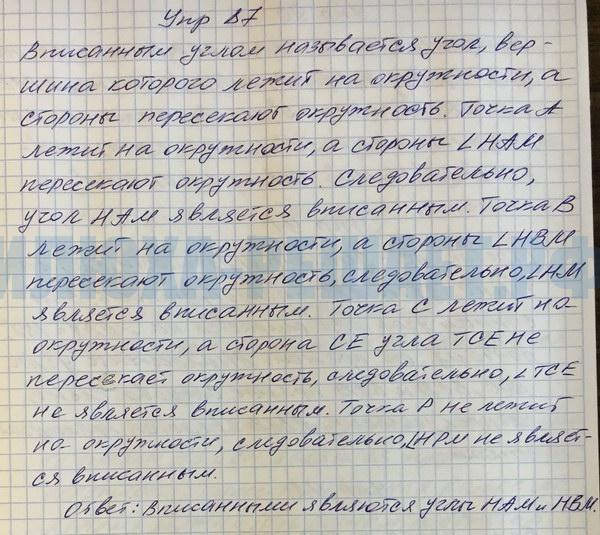 Упр 87
Вписанным углом называется угол, вер-
шина которого лежит на окружности, а
стороны пересекают окружность. Точка А
лежит на окружности, а стороны ∠НАМ
пересекают окружность. Следовательно,
угол НАМ является вписанным. Точка В
лежит на окружности, а стороны ∠НВМ
пересекают окружность, следовательно, ∠НМ
является вписанным. Точка С лежит на
окружности, а сторона СЕ угла ТСЕ не
пересекает окружность, следовательно, ∠ТСЕ
не является вписанным. Точка Р не лежит
на окружности, следовательно, ∠НРМ не являет-
ся вписанным.
Ответ: Вписанными являются углы НАМ и НВМ.